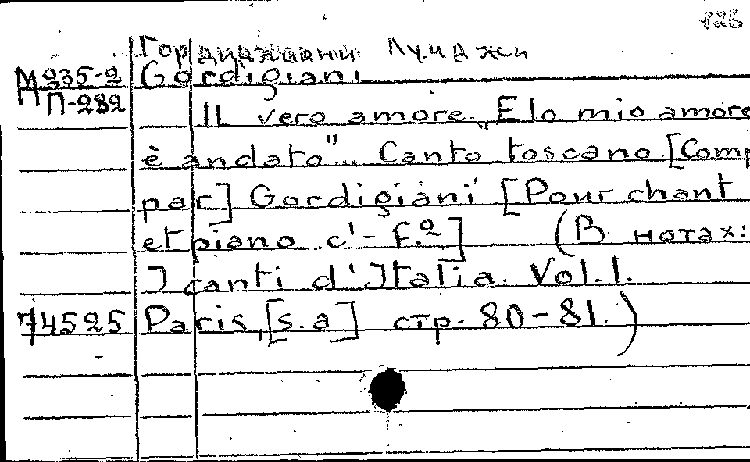 125
Гордиджани Луиджи
М 235-2 Gordigiani
П-282 Il vero amore „E lo mio amore
è andato“... Canto toscano [Comp
par] Gordigiani [Pour chant
et piano c'-f.²] (В нотах:
I canti d'Italia. Vol. I.
74525 Paris, [s.a] стр. 80-81.)